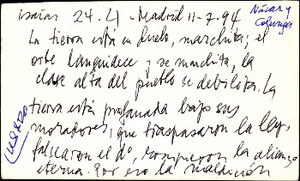 isaias 24.4 - Madrid 11-7-94
Nácar y Colunga
La tierra está en duelo, marchita; el
orbe languidece y se marchita, la
clase alta del pueblo se debilita. La
tierra está profanada bajo sus
moradores, que traspasaron la ley,
falsearon el dº, rompieron la alianza
eterna. Por eso la maldición